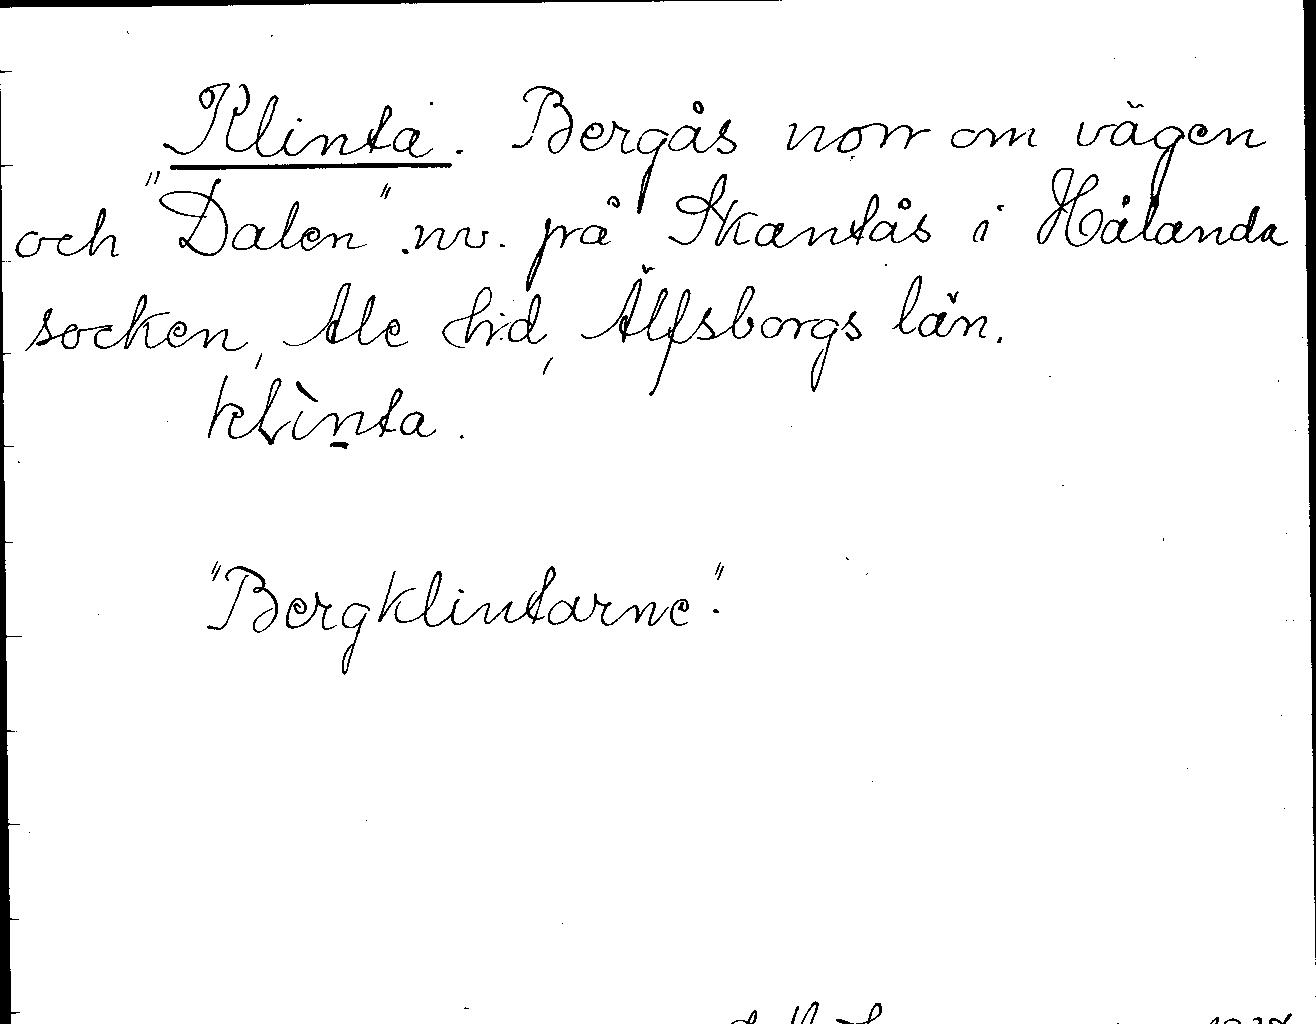 Klinta. Bergås norr om vägen
och "Dalen" nv. på Skantås i Hålanda
socken, Ale hd, Älfsborgs län.
klìnta.
"Bergklintarne".